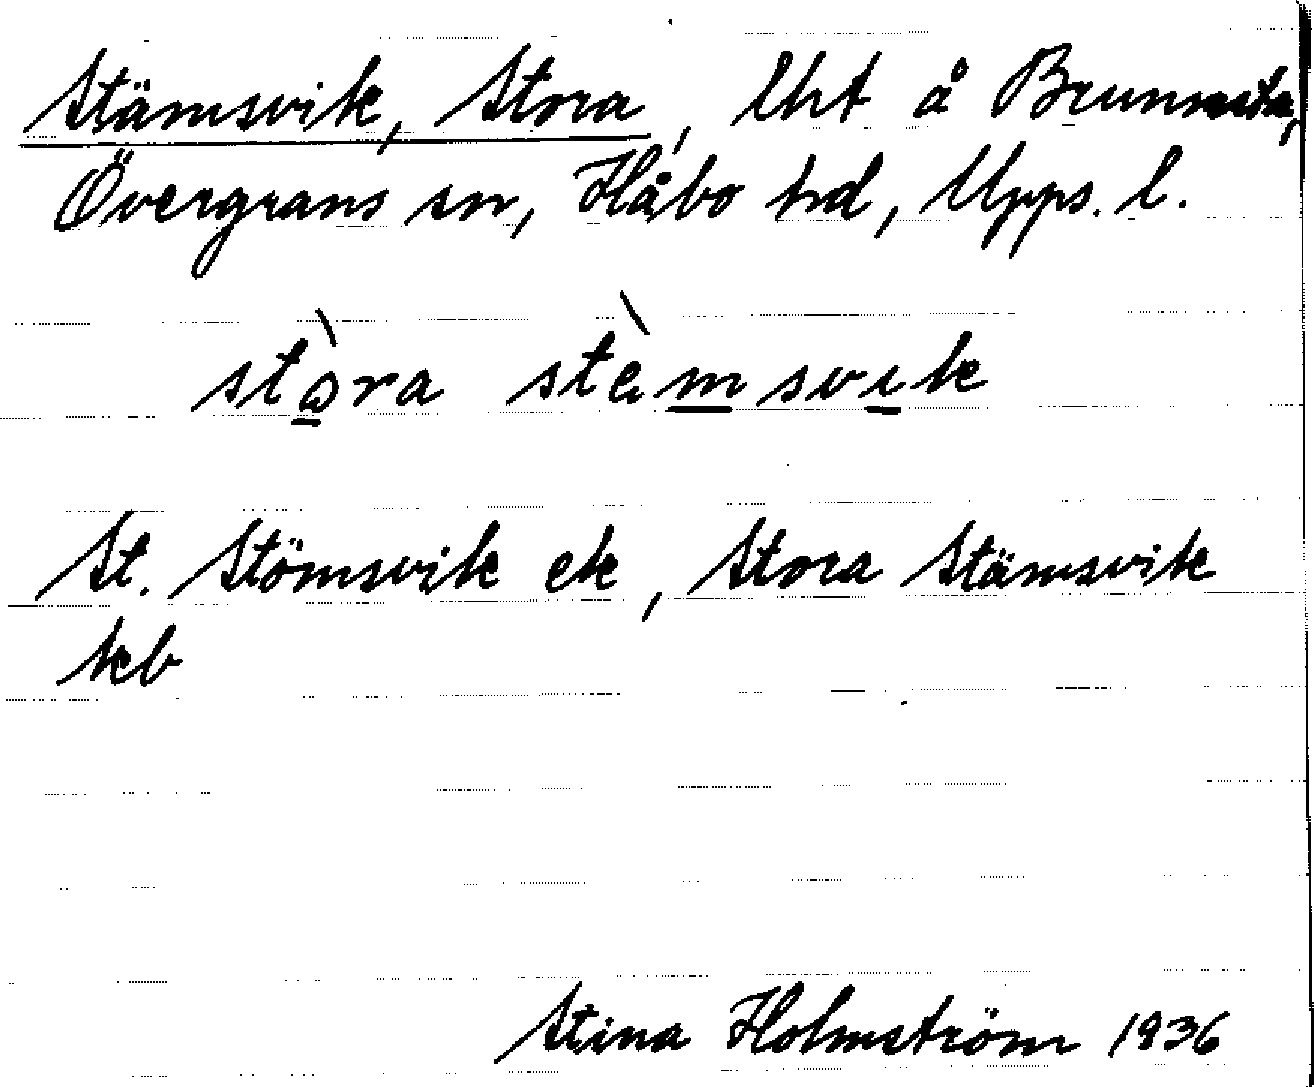 Stämsvik, Stora, lht å Brunnsta,
Övergrans sn, Håbo hd, Upps. l.
stò̱ra stèm̱svi̱k
St. Stömsvik ek, Stora Stämsvik
kb
Stina Holmström 1936